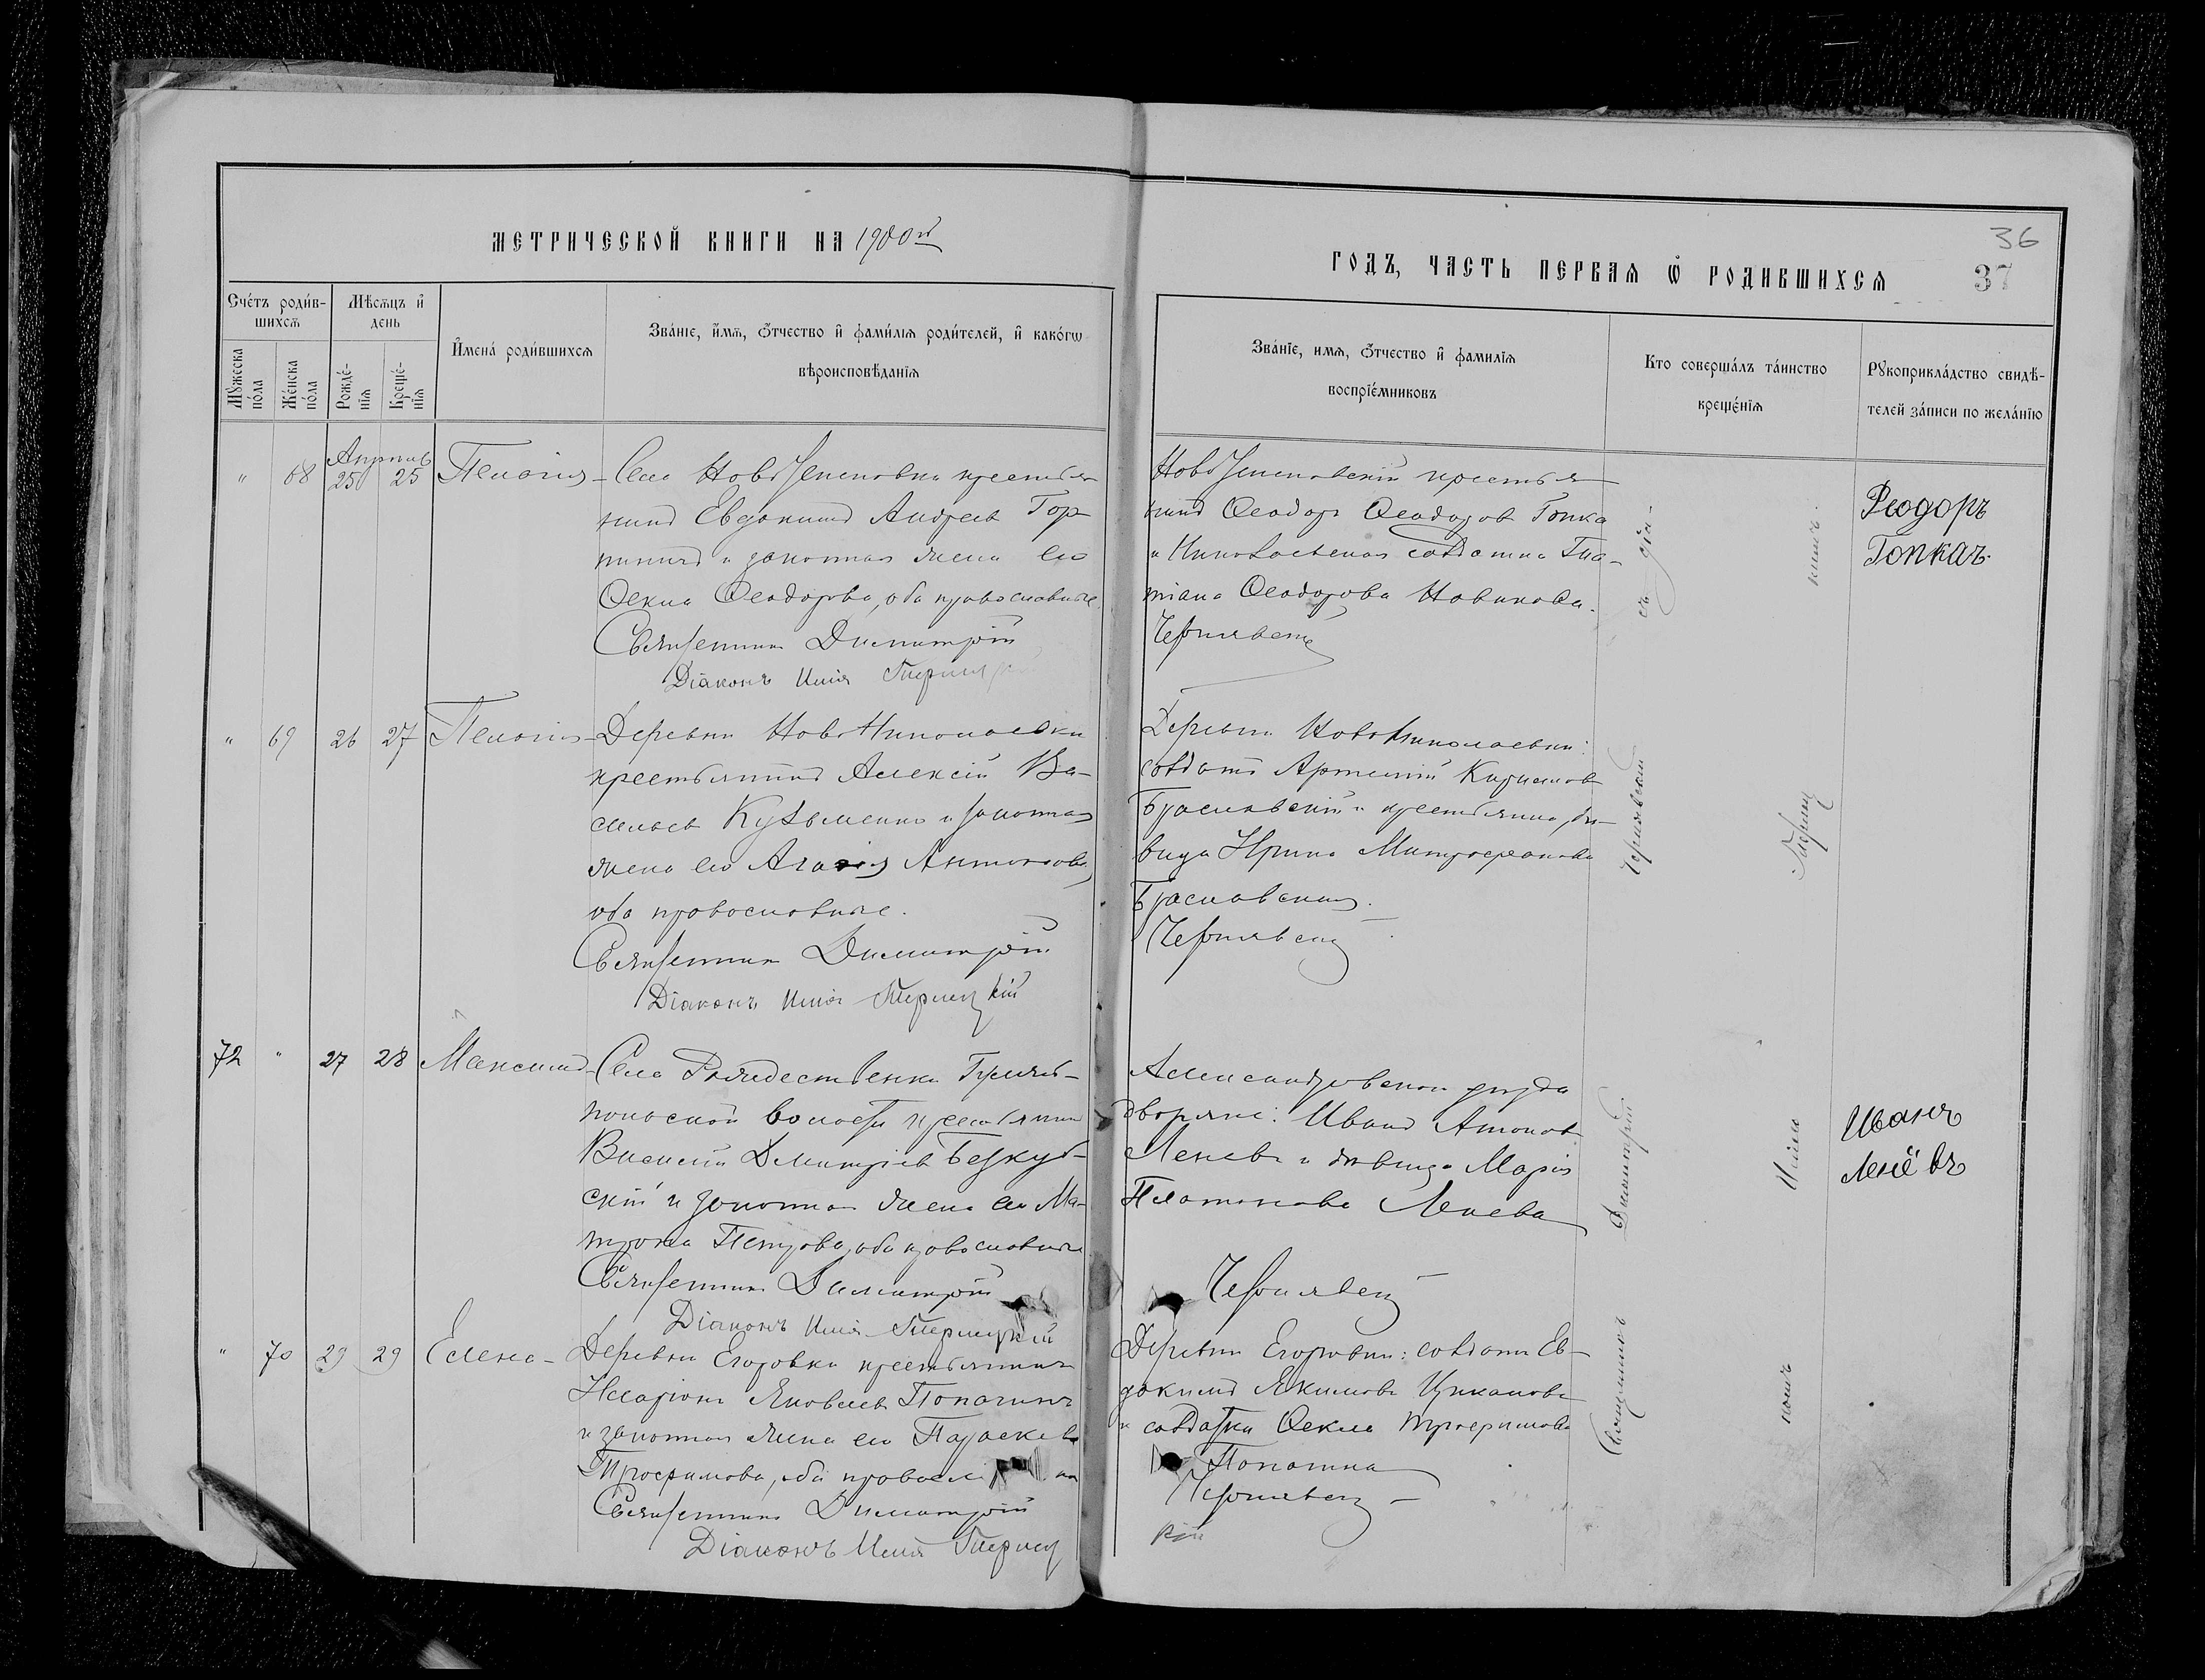 МЕТРИЧЕСКОЙ КНИГИ НА 1900й
ГОДЪ, ЧАСТЬ ПЕРВАЯ Ѡ РОДИВШИХСЯ
36
37
Сче́тъ роди́в-
шихсѧ
Мѣсѧцъ и҆
день
Мꙋжеска
по́ла
Же́нска
по́ла
Рожде́-
нїѧ
Креще́-
нїѧ
И҆мена́ роди́вшихсѧ
Зва́нїе, и҆́мѧ, ѻ҆́тчество и҆ фами́лїѧ роди́телей, и҆ како́гѡ
вѣроисповѣ́данїѧ
Зва́нїе, имѧ, ѻ҆́тчество и҆ фамилїѧ
воспрїе́мниковъ
Кто соверша́лъ та́инство
креще́нїѧ
Рꙋкоприкла́дство свидѣ́-
телей за́писи по жела́нїю
Апрѣль
" 68 25 25 Пелагія - Село НовоУспеновки крестья
нинъ Евдокимъ Андреевъ Гор
и законная жена его
Ѳекла Ѳеодорова, оба православные.
Священникъ Димитрій
Діаконъ Илія
НовоУспеновскій крестья
нинъ Ѳеодоръ Ѳеодоровъ Гопка
и Николаевская солдатка Та-
тіана Ѳеодорова Новикова.
Чернявскій
Ѳеодоръ
Гопкаъ.
" 69 26 27 Пелагія - Деревни НовоНиколаевки
крестьянинъ Алексій Ва-
сильевъ Кузьменко и законная
жена его Агаѳія Антонова,
оба православные.
Священникъ Димитрій
Діаконъ Илія Терлецкій
Деревни Новониколаевки:
солдатъ Артемій Кириловъ
Браславскій и крестьянка, дѣ-
вица Ирина Митрофанова
Браславская.
Чернявскій
72 " 27 28 Максимъ - Села Рождественки Гуляй-
польской волости крестьянинъ
Василій Димитріевъ
и законная жена его Ма-
трона Петрова, оба православные
Священникъ Димитрій
Діаконъ Илія Терлецкій
Александровскаго уѣзда
дворяне: Иванъ Антоновъ
Леневъ и дѣвица Марія
Платонова Ленева
Чернявскій
Иванъ
Лёневъ
" 70 29 29 Елена - Деревни Егоровки крестьянинъ
Иларіонъ Яковлевъ
и законная жена его Параскева
Трофимова, оба
Священникъ Димитрій
Діаконъ Илія Терлец
Деревни Егоровки: солдатъ Ев-
докимъ Якимовъ Цыкановъ
и солдатка Ѳекла Трофимова
Чернявскій
кій
Священникъ Димитрій Чернявскій съ діа-
кономъ Иліею Терлец